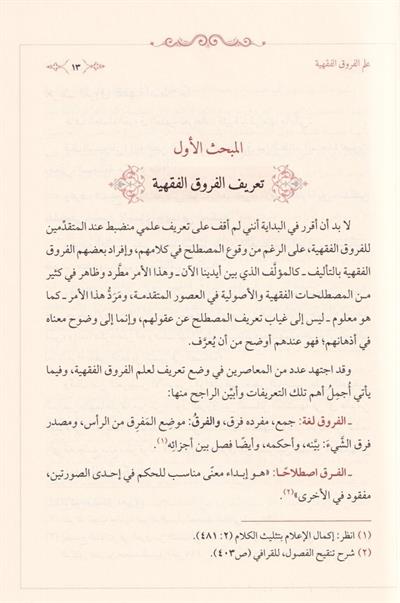 علم الفروق الفقهية
١٣
المبحث الأول
تعريف الفروق الفقهية
لا بد أن أقرر في البداية أنني لم أقف على تعريف علمي منضبط عند المتقدِّمين
للفروق الفقهية، على الرغم من وقوع المصطلح في كلامهم، وإفراد بعضهم الفروق
الفقهية بالتأليف ـ كالمؤلَّف الذي بين أيدينا الآن ـ وهذا الأمر مطَّرد وظاهر في كثير
من المصطلحات الفقهية والأصولية في العصور المتقدمة، ومَرَدُّ هذا الأمر ـ كما
هو معلوم ـ ليس إلى غياب تعريف المصطلح عن عقولهم، وإنما إلى وضوح معناه
في أذهانهم؛ فهو عندهم أوضح من أن يُعرَّف.
وقد اجتهد عدد من المعاصرين في وضع تعريف لعلم الفروق الفقهية، وفيما
يأتي أُجمِلُ أهم تلك التعريفات وأبيِّن الراجح منها:
ـ الفروق لغة: جمع، مفرده فرق، والفرقُ: موضِع المَفرِق من الرأس، ومصدر
فرق الشَّيءَ: بيَّنه، وأحكمه، وأيضًا فصل بين أجزائِه(١).
ـ الفرق اصطلاحًا: «هو إبداء معنًى مناسب للحكم في إحدى الصورتين،
مفقود في الأخرى»(٢).
(١) انظر: إكمال الإعلام بتثليث الكلام (٢: ٤٨١).
(٢) شرح تنقيح الفصول، للقرافي (ص٤٠٣).